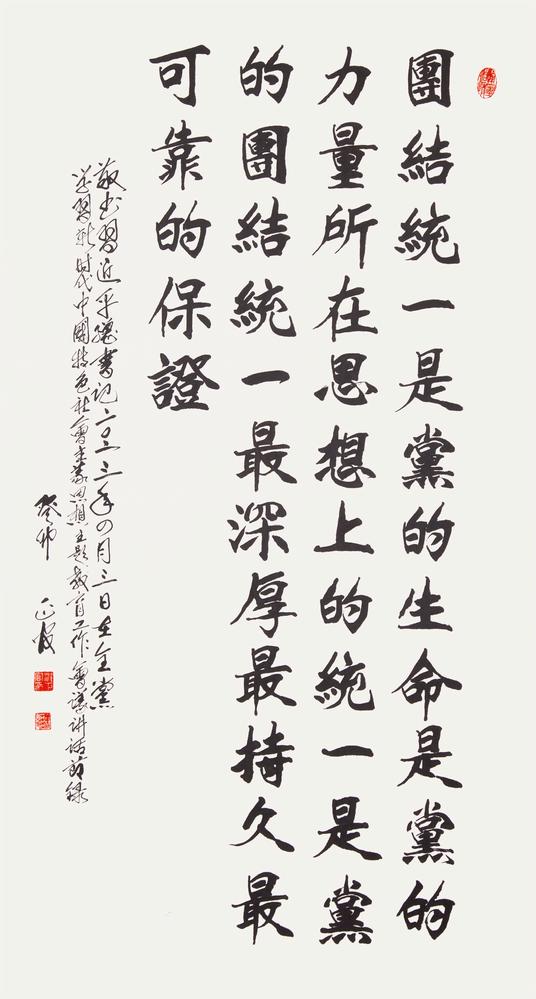 團結統一是黨的生命是黨的
力量所在思想上的統一是黨
的團結統一最深厚最持久最
可靠的保證
敬書習近平總書記二〇二三年四月三日在全黨
學習新時代中國特色社會主義思想主題教育工作會議講話節錄
癸卯